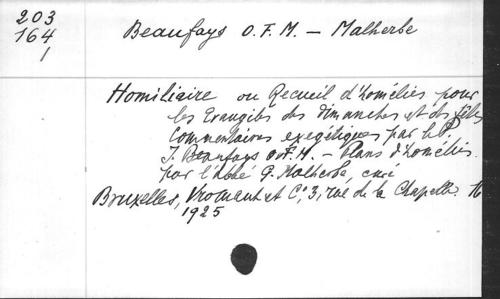 203
164
1
Beaufays O.F.M. – Malherbe
Homiliaire ou Recueil d'homélies pour
les Evangiles des dimanches et des fêtes
Commentaires exégétiques par le P.
I. Beaufays O.F.M. – Plans d'homélies
par l'abbé G. Malherbe, curé
Bruxelles, Vromant et C°, 3, rue de la Chapelle. 16
1925